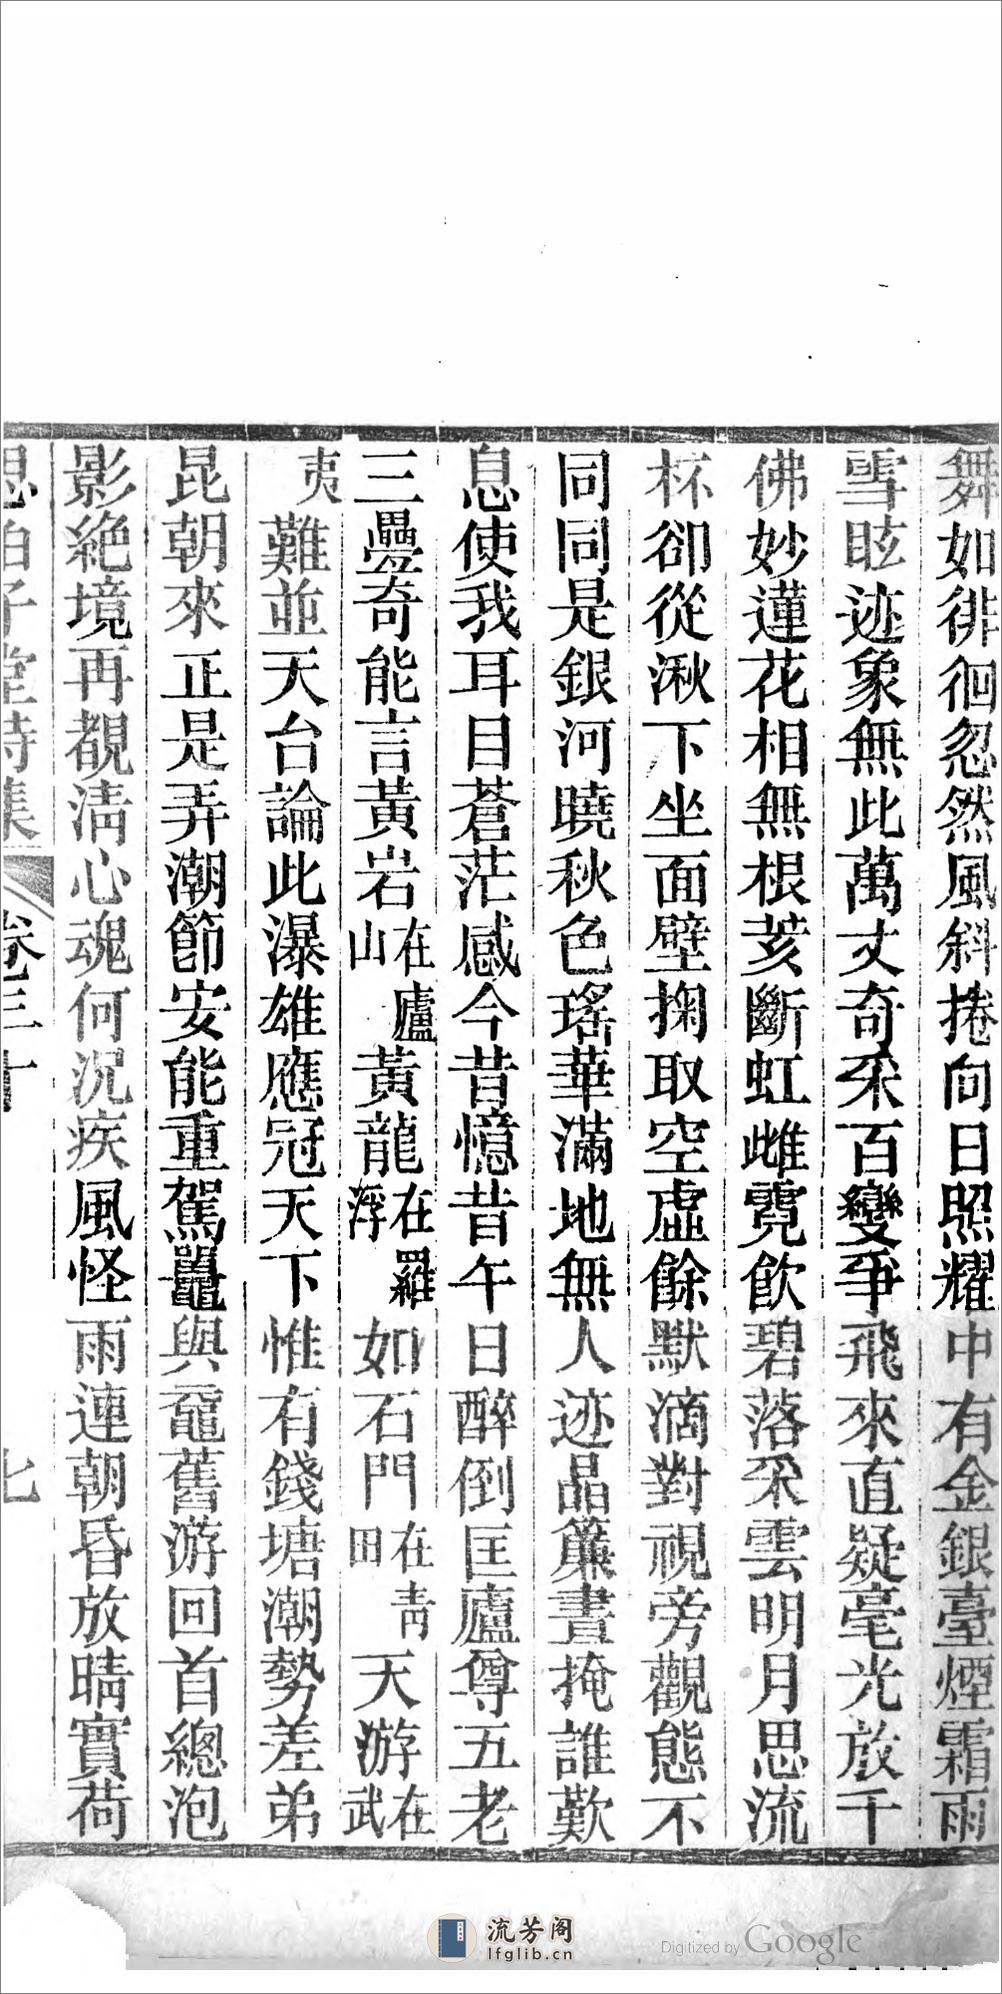 舞如徘徊忽然風斜捲向日照耀中有金銀臺煙霜雨
雪眩迹象無此萬丈奇采百變爭飛來直疑毫光放千
佛妙蓮花相無根亥斷虹雌霓飲碧落采雲明月思流
杯卻從湫下坐面壁掬取空虛餘默滴對視旁觀態不
同同是銀河曉秋色瑤華滿地無人迹晶簾晝掩誰歎
息使我耳目蒼茫感今昔憶昔午日醉倒匡廬尊五老
三疊奇能言黃岩在廬山黃龍在羅浮如石門在青田天游在武
夷難並天台論此瀑雄應冠天下惟有錢塘潮勢差弟
昆朝來正是弄潮節安能重駕鼉與黿舊游回首總泡
影絕境再覩清心魂何況疾風怪雨連朝昏放晴實荷
思伯子堂詩集 卷三十 七
流芳阁
lfglib.cn
Digitized by Google